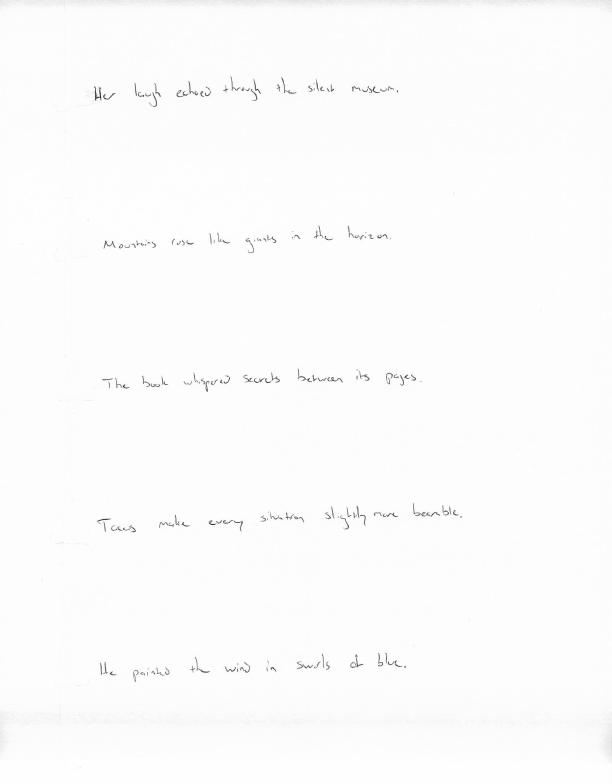 Her laugh echoed through the silent museum.
Mountains rose like giants in the horizon.
The book whispered secrets between its pages.
Tacos make every situation slightly more bearable.
He painted the wind in swirls of blue.